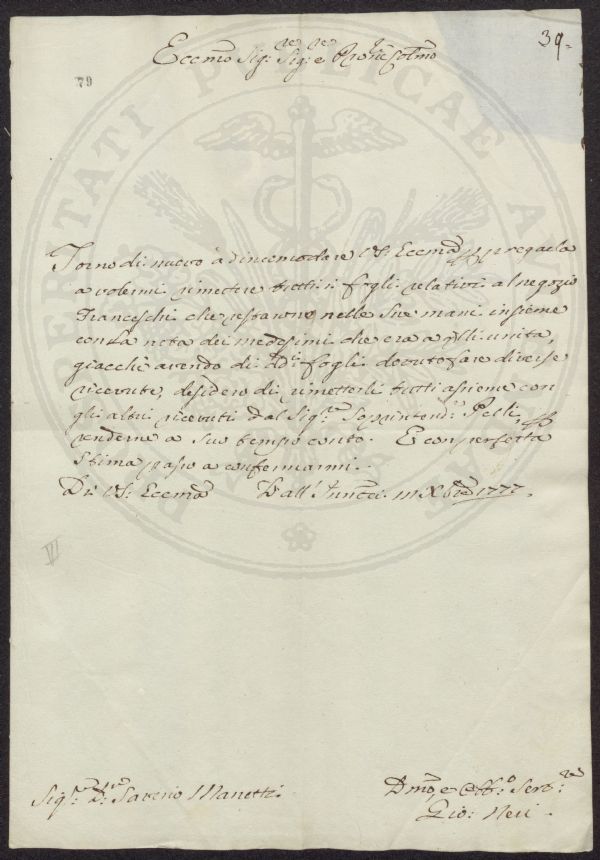 39.
Eccmo Sigre Sigre e Prone Colmo
79
Torno di nuovo ad incomodare V.S. Eccma p pregarla
a volermi rimettere tutti i fogli relativi al negozio
Franceschi che restarono nelle Sue mani insieme
con La nota dei medesimi che era a qlli unita,
giacchè avendo di dti fogli dovuto fare diverse
ricevute, desidero di rimetterli tutti assieme con
gli altri ricevuti dal Sigre Soprintendte Pelli, p
renderne a suo tempo conto. E con perfetta
Stima passo a confermarmi.
Di V.S. Eccma Dall' Annta 11 Xbre 1777.
VII
Sigre Dre Saverio Manetti
Dmo, e Obbo Serre
Gio: Neri.